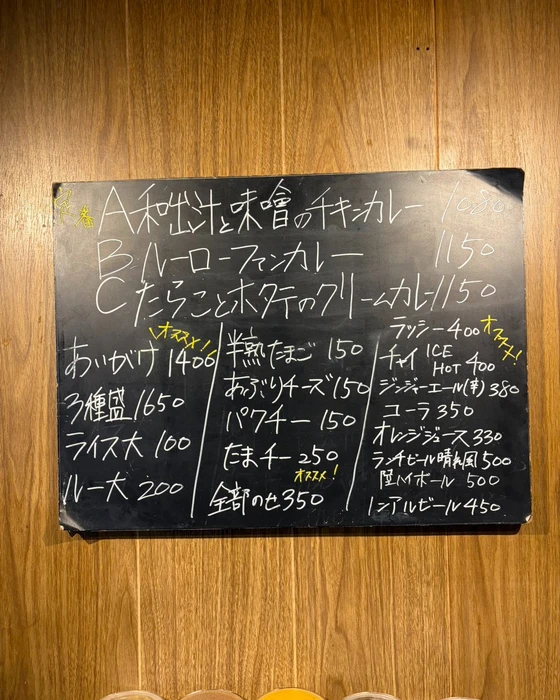 A 和出汁と味噌のチキンカレー
B ルーローファンカレー 1150
C たらことホタテのクリームカレー 1150
オススメ!
あいがけ 1400
3種盛 1650
ライス大 100
ルー大 200
半熟たまご 150
あぶりチーズ 150
パクチー 150
たまチー 250
オススメ!
全部のせ 350
ラッシー 400 オススメ!
チャイ ICE HOT 400
ジンジャーエール(辛) 380
コーラ 350
オレンジジュース 330
ランチビール晴れ風 500
陸ハイボール 500
ノンアルビール 450